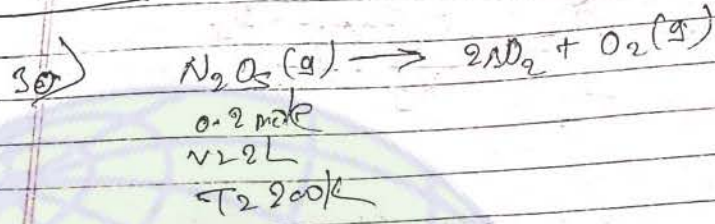 30) N₂O₅ (g) → 2NO₂ + O₂ (g)
0.2 mole
V = 2L
T = 200K